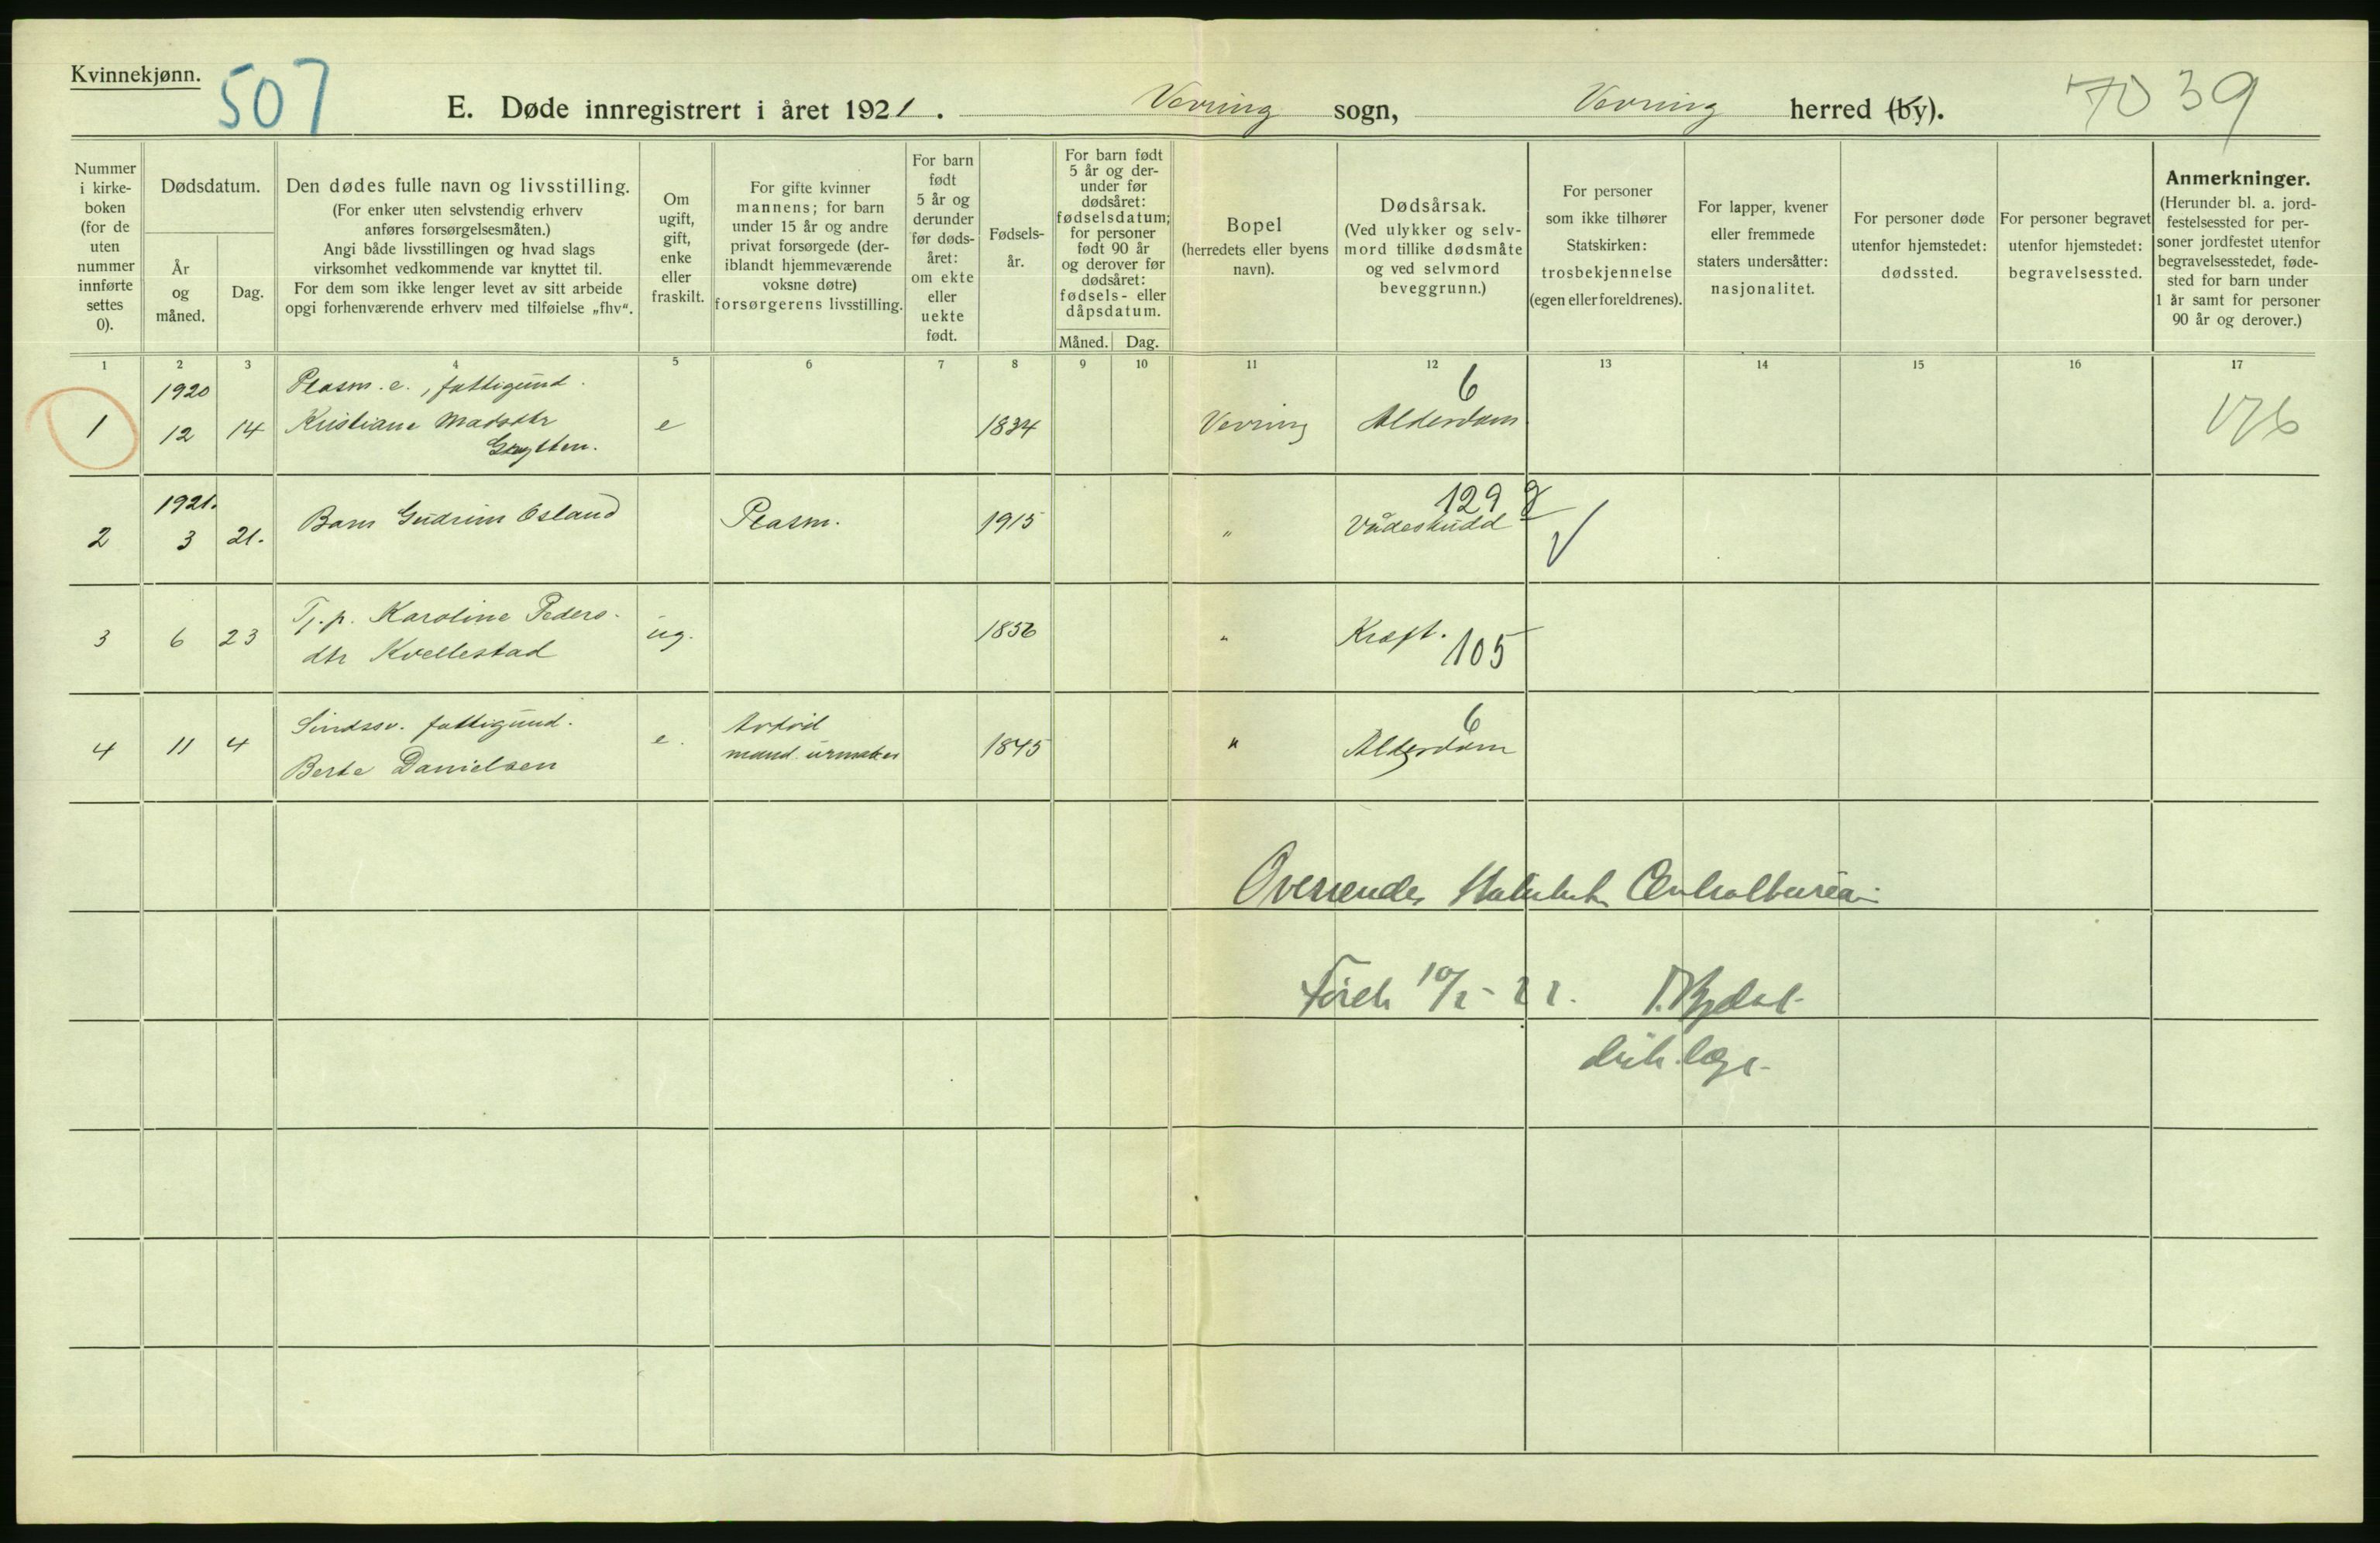 Kvinnekjønn.
507
E. Døde innregistrert i året 1921. Vevring sogn, Vevring herred (by).
70 39
Nummer i kirke- boken (for de uten nummer innførte settes 0).
Dødsdatum.
År og måned.
Dag.
Den dødes fulle navn og livsstilling.
(For enker uten selvstendig erhverv
anføres forsørgelsesmåten.)
Angi både livsstillingen og hvad slags
virksomhet vedkommende var knyttet til.
For dem som ikke lenger levet av sitt arbeide
opgi forhenværende erhverv med tilføielse „fhv“.
Om
ugift,
gift,
enke
eller
fraskilt.
For gifte kvinner
mannens; for barn
under 15 år og andre
privat forsørgede (der-
iblandt hjemmeværende
voksne døtre)
forsørgerens livsstilling.
For barn
født
5 år og
derunder
før døds-
året:
om ekte
eller
uekte
født.
Fødsels-
år.
For barn født
5 år og der-
under før
dødsåret:
fødselsdatum;
for personer
født 90 år
og derover før
dødsåret:
fødsels- eller
dåpsdatum.
Måned. Dag.
Bopel
(herredets eller byens
navn).
Dødsårsak.
(Ved ulykker og selv-
mord tillike dødsmåte
og ved selvmord
beveggrunn.)
For personer
som ikke tilhører
Statskirken:
trosbekjennelse
(egen eller foreldrenes).
For lapper, kvener
eller fremmede
staters undersåtter:
nasjonalitet.
For personer døde
utenfor hjemstedet:
dødssted.
For personer begravet
utenfor hjemstedet:
begravelsessted.
Anmerkninger.
(Herunder bl. a. jord-
festelsessted for per-
soner jordfestet utenfor
begravelsesstedet, føde-
sted for barn under
1 år samt for personer
90 år og derover.)
1 2 3 4 5 6 7 8 9 10 11 12 13 14 15 16 17
1920 Plasm. e., fattigund. 6
1 12 14 Kristiane Madsdtr e 1834 Vevring Alderdom 176
1921. 129 g
2 3 21. Barn Gudrun Osland Plasm. 1915 " Vådeskudd ✓
Tj. p. Karoline Peders-
3 6 23 dtr Kvellestad ug. 1856 " Kræft. 105
Sindssv. fattigund. 6
4 11 4 Berte Danielsen e. mand urmaker 1845 " Alderdom
Oversendes Statistisk Centralbureau
Førde 10/2-22.
distr. læge